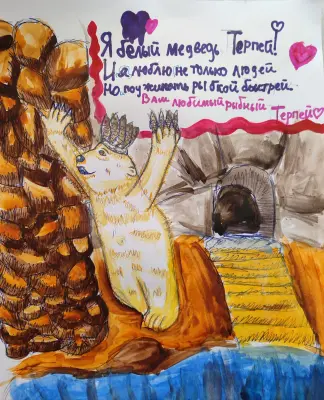 Я белый медведь Терпей!
И я люблю не только людей
Но поужинать рыбкой быстрей
Ваш любимый рыбный
Терпей